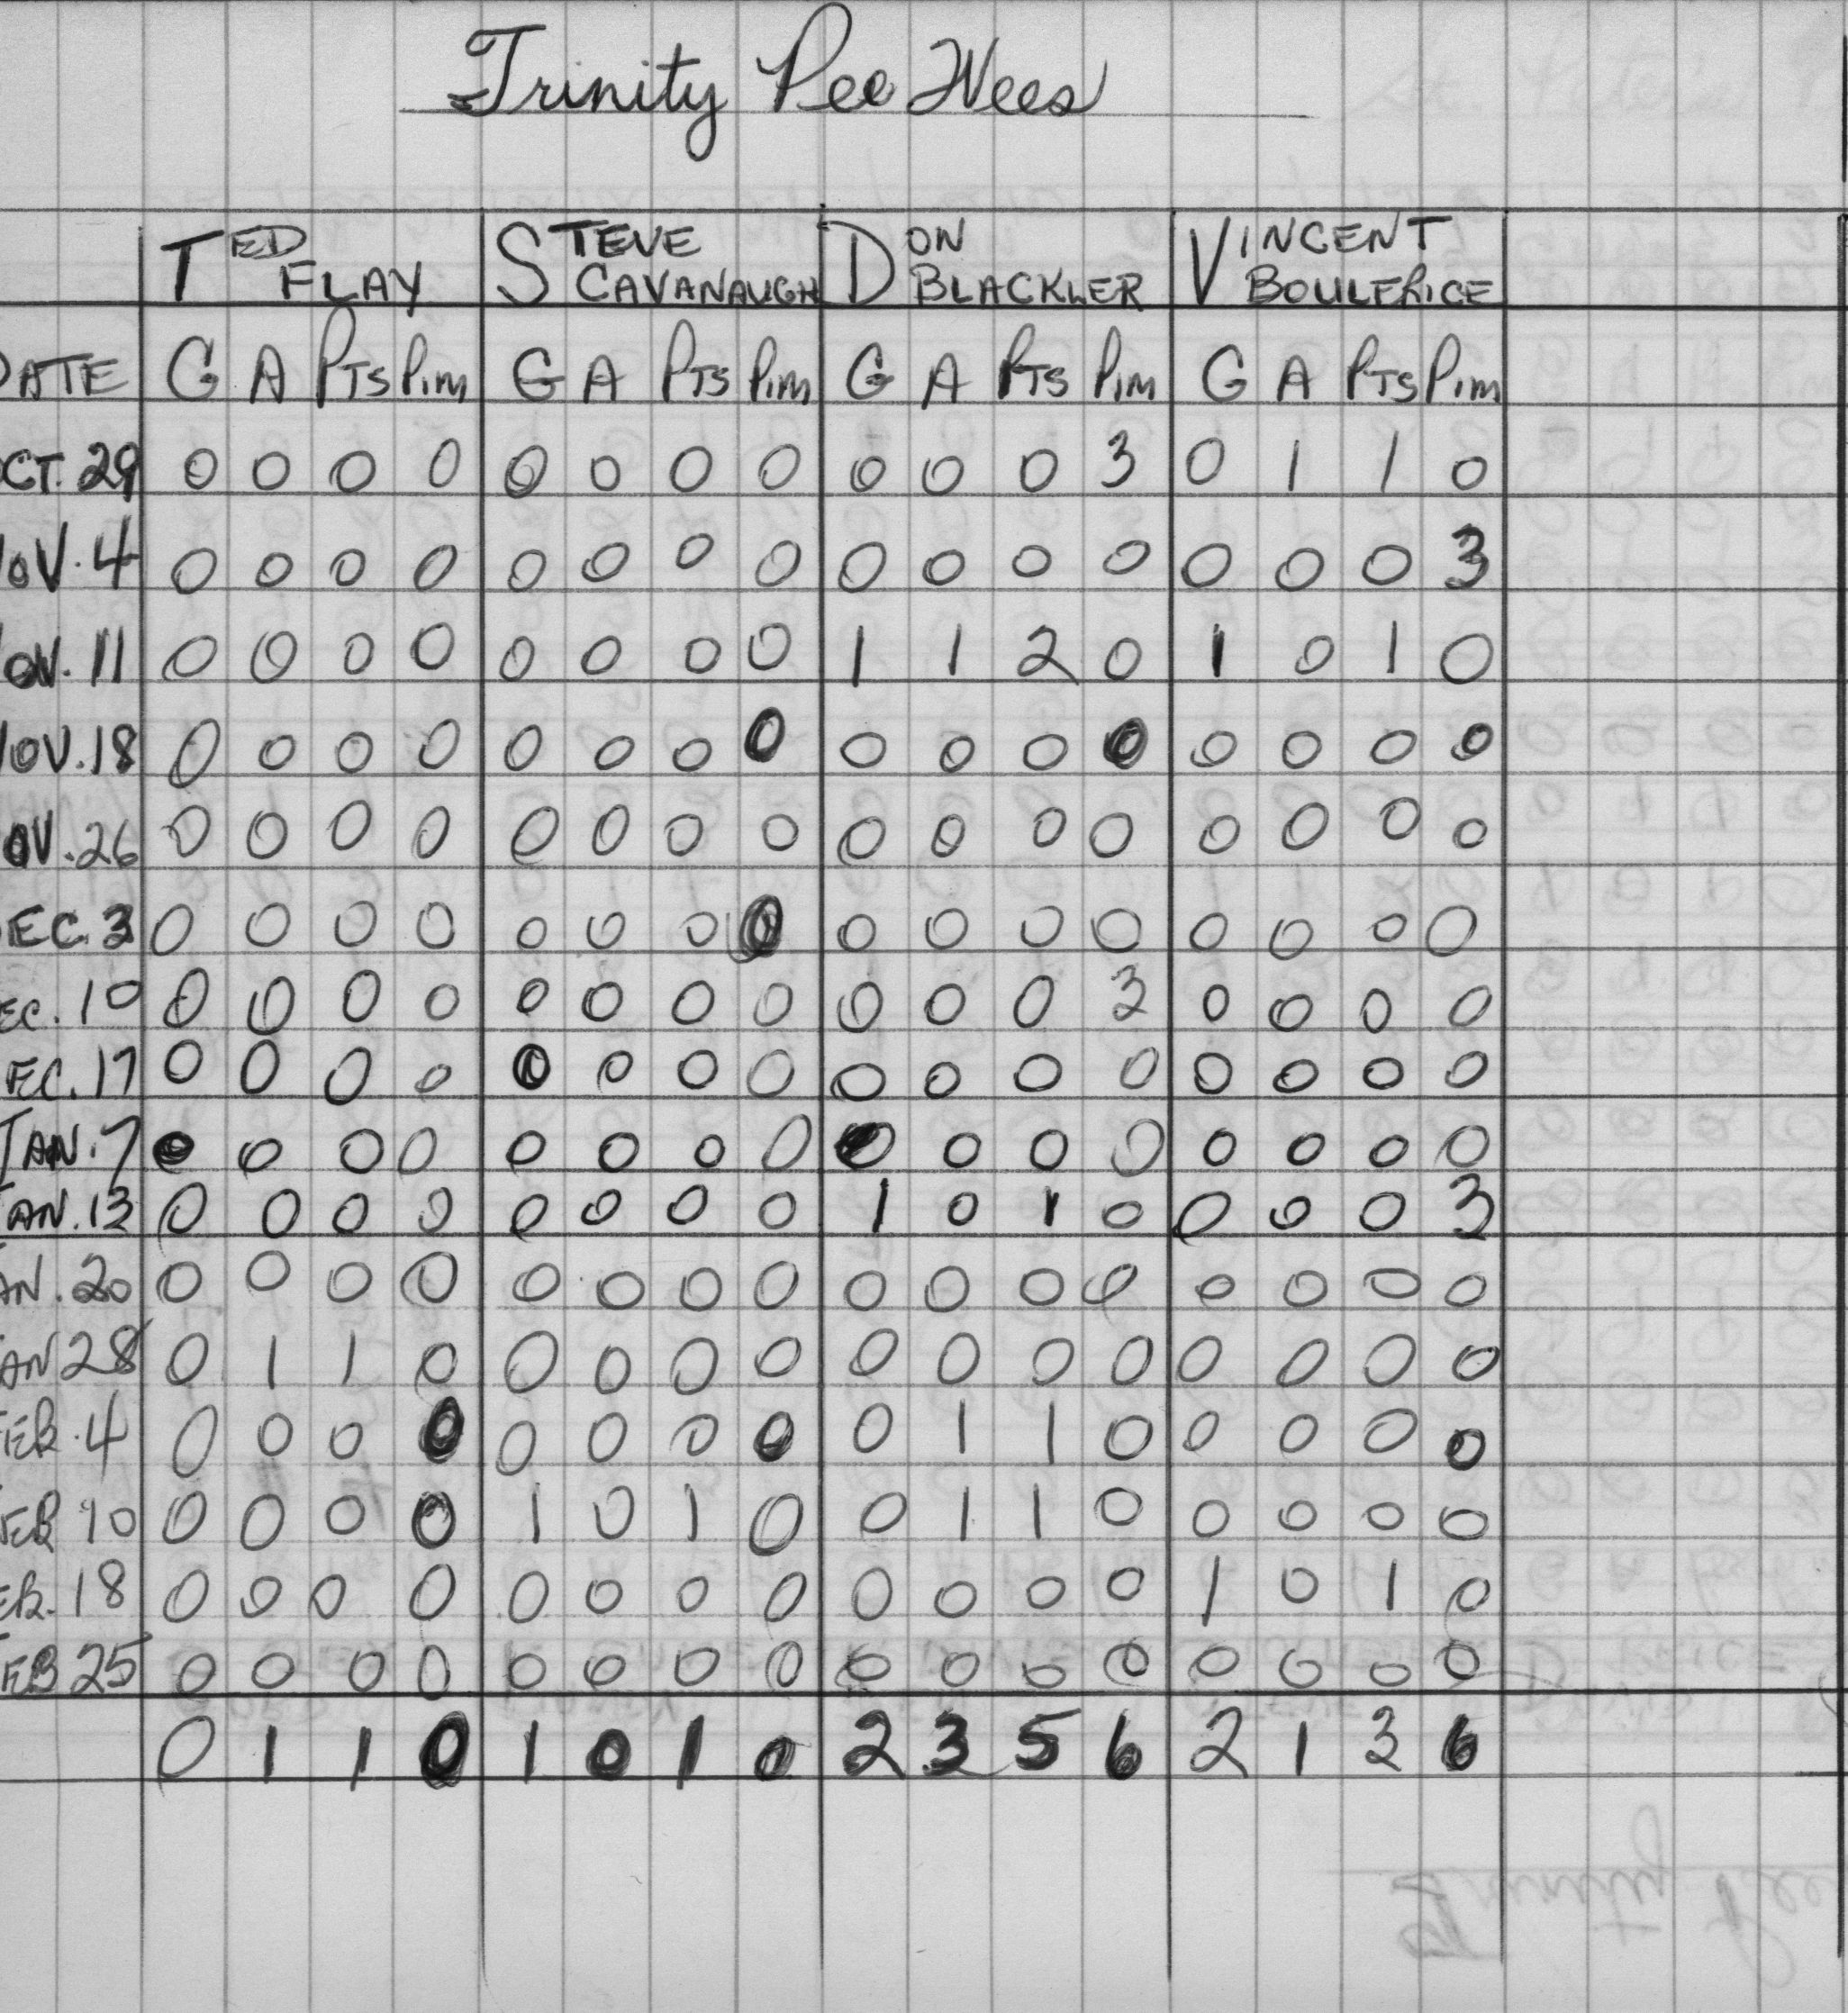 Trinity Pee Wees
TED FLAY STEVE CAVANAUGH DON BLACKLER VINCENT BOULERICE
DATE G A PTS PIM G A PTS PIM G A PTS PIM G A PTS PIM
OCT. 29 0 0 0 0 0 0 0 0 0 0 0 3 0 1 1 0
NOV. 4 0 0 0 0 0 0 0 0 0 0 0 0 0 0 0 3
NOV. 11 0 0 0 0 0 0 0 0 1 1 2 0 1 0 1 0
NOV. 18 0 0 0 0 0 0 0 0 0 0 0 0 0 0 0 0
NOV. 26 0 0 0 0 0 0 0 0 0 0 0 0 0 0 0 0
DEC. 3 0 0 0 0 0 0 0 0 0 0 0 0 0 0 0 0
DEC. 10 0 0 0 0 0 0 0 0 0 0 0 3 0 0 0 0
DEC. 17 0 0 0 0 0 0 0 0 0 0 0 0 0 0 0 0
JAN. 7 0 0 0 0 0 0 0 0 0 0 0 0 0 0 0 0
JAN. 13 0 0 0 0 0 0 0 0 1 0 1 0 0 0 0 3
JAN. 20 0 0 0 0 0 0 0 0 0 0 0 0 0 0 0 0
JAN 28 0 1 1 0 0 0 0 0 0 0 0 0 0 0 0 0
FEB. 4 0 0 0 0 0 0 0 0 0 1 1 0 0 0 0 0
FEB 10 0 0 0 0 1 0 1 0 0 1 1 0 0 0 0 0
FEB. 18 0 0 0 0 0 0 0 0 0 0 0 0 1 0 1 0
FEB 25 0 0 0 0 0 0 0 0 0 0 0 0 0 0 0 0
0 1 1 0 1 0 1 0 2 3 5 6 2 1 3 6